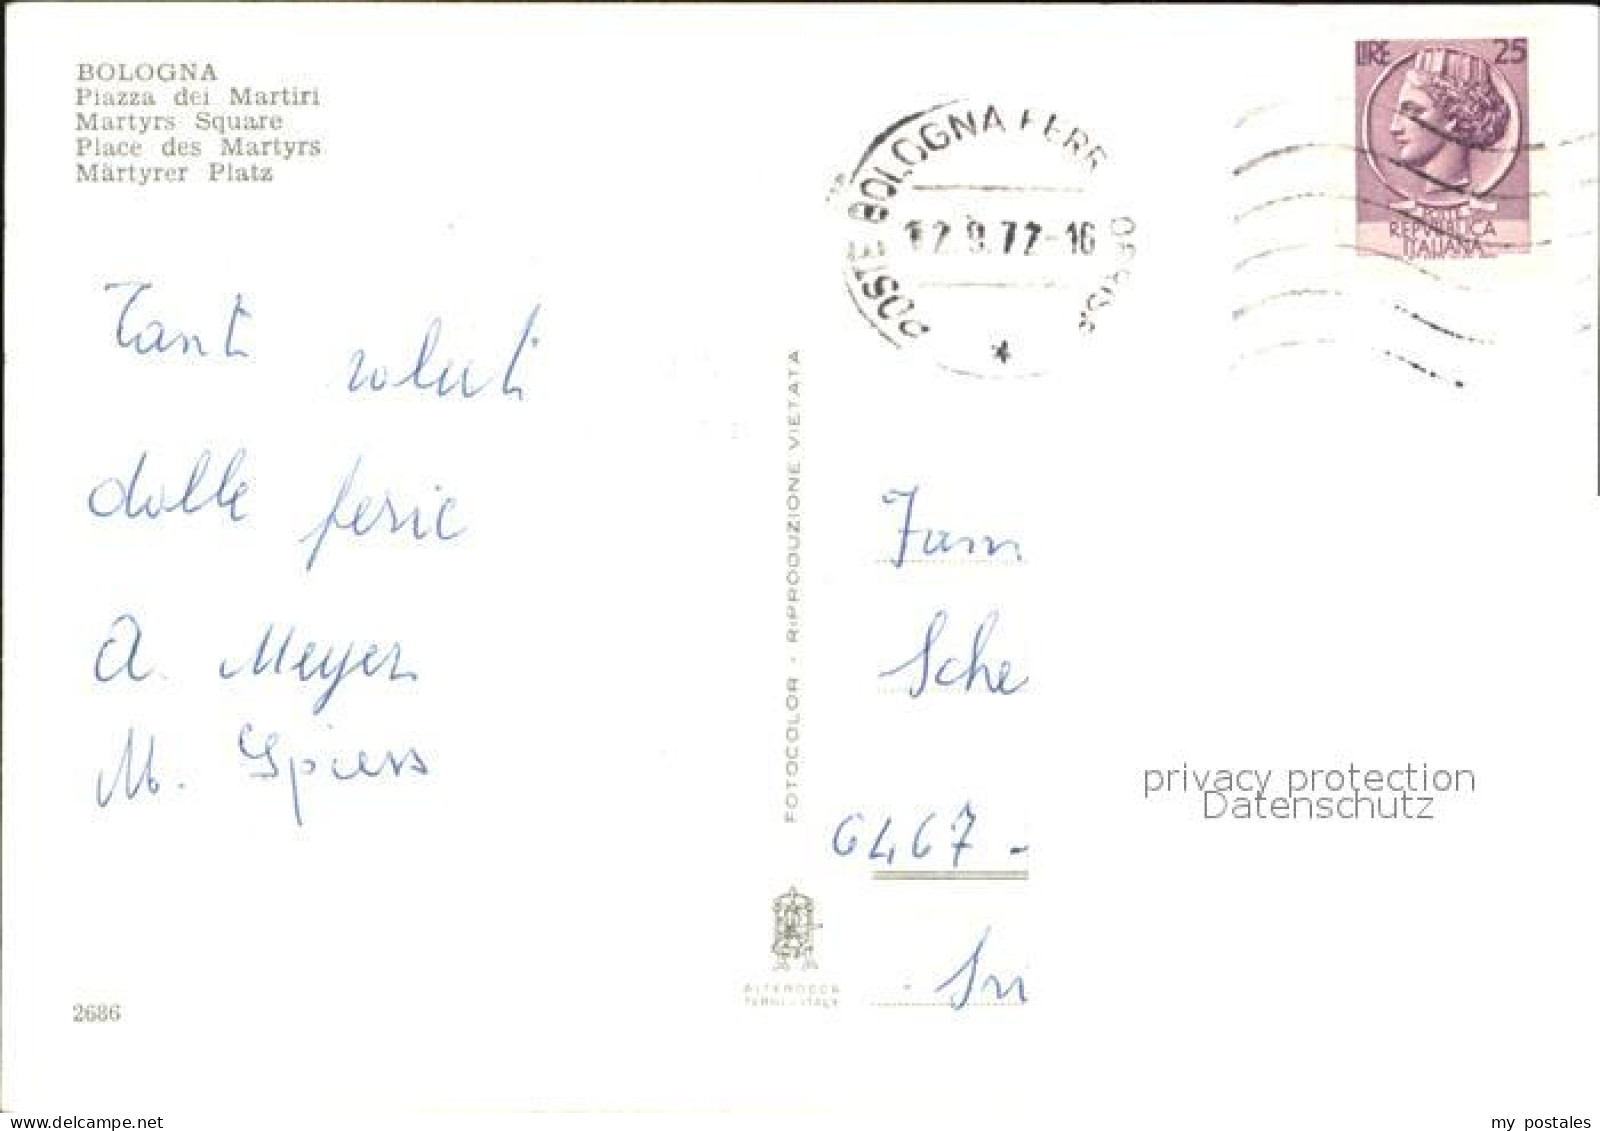 BOLOGNA
Piazza dei Martiri
Martyrs Square
Place des Martyrs
Märtyrer Platz
LIRE 25
POSTE
REPVBBLICA
ITALIANA
POSTE BOLOGNA FERR
12.9.72-16
Tanti saluti
dalle ferie
A. Meyer
M. Spiess
FOTOCOLOR - RIPRODUZIONE VIETATA
Fam
Sche
6467 -
privacy protection
Datenschutz
ALTEROCCA
TERNI - ITALY
2686
my postales